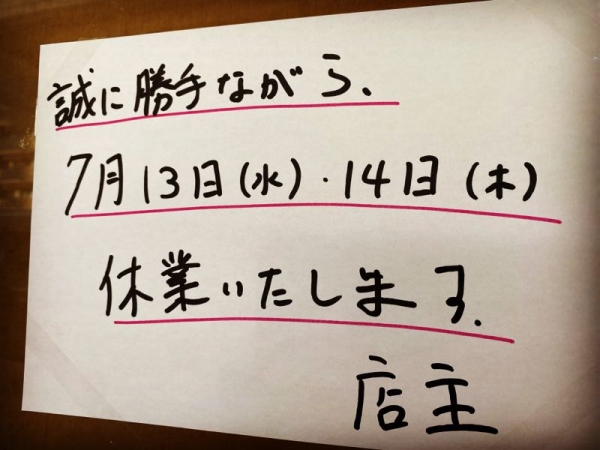 誠に勝手ながら、
7月13日(水)・14日(木)
休業いたします.
店主